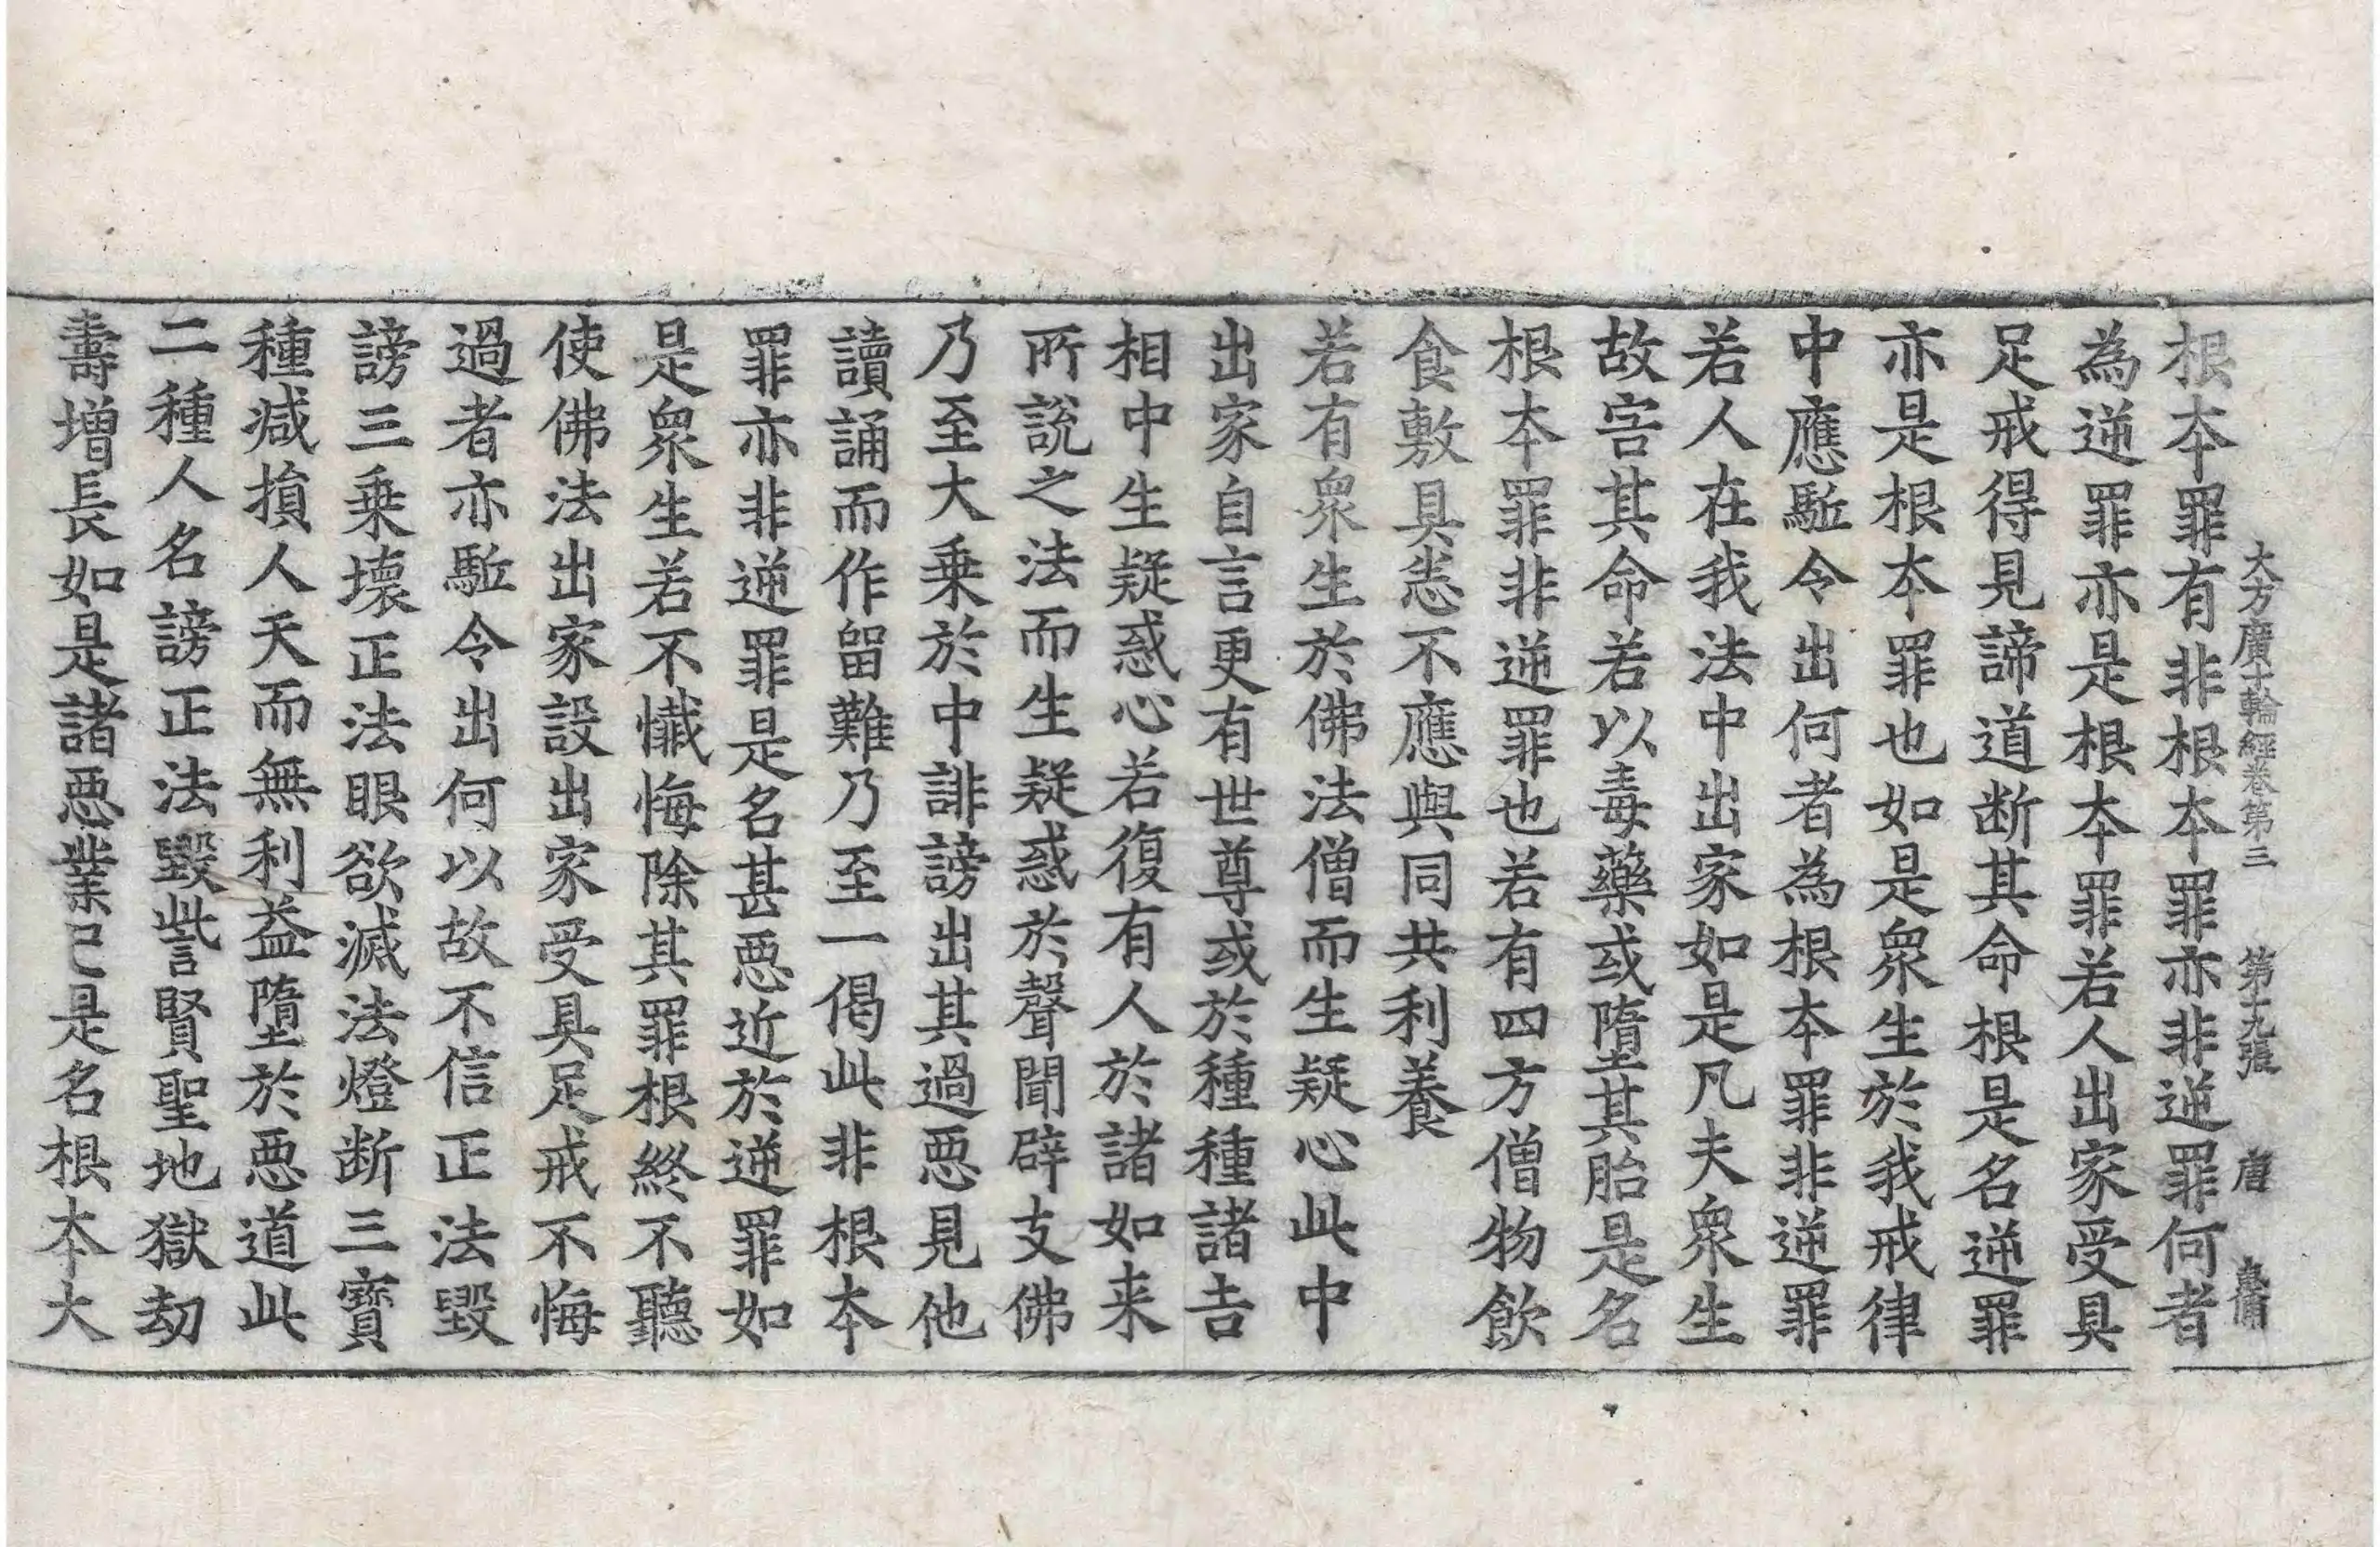 大方廣十輪經卷第三　第十九張　唐
根本罪有非根本罪亦非逆罪何者
為逆罪亦是根本罪若人出家受具
足戒得見諦道断其命根是名逆罪
亦是根本罪也如是衆生於我戒律
中應駈令出何者為根本罪非逆罪
若人在我法中出家如是凡夫衆生
故害其命若以毒藥或墮其胎是名
根本罪非逆罪也若有四方僧物飲
食敷具悉不應與同共利養
若有衆生於佛法僧而生疑心此中
出家自言更有世尊或於種種諸吉
相中生疑惑心若復有人於諸如来
所說之法而生疑惑於聲聞辟支佛
乃至大乗於中誹謗出其過惡見他
讀誦而作留難乃至一偈此非根本
罪亦非逆罪是名甚惡近於逆罪如
是衆生若不懺悔除其罪根終不聽
使佛法出家設出家受具足戒不悔
過者亦駈令出何以故不信正法毀
謗三乗壊正法眼欲滅法燈断三寶
種減損人天而無利益墮於惡道此
二種人名謗正法毀呰賢聖地獄劫
壽增長如是諸惡業已是名根本大